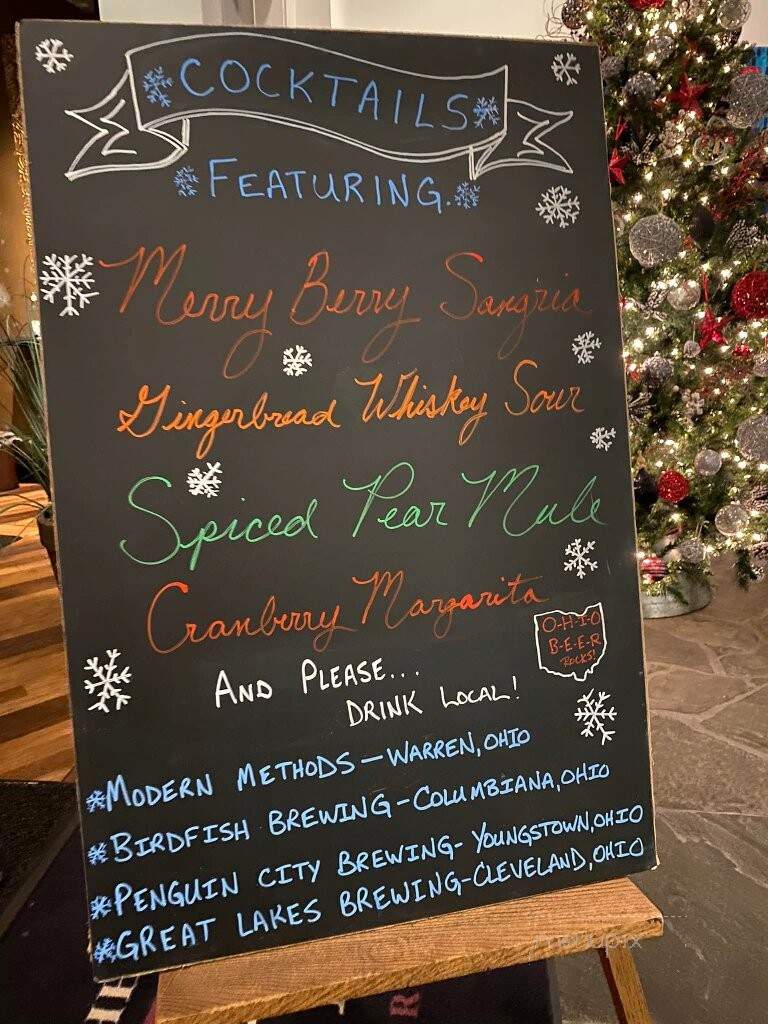 COCKTAILS
FEATURING.
Merry Berry Sangria
Gingerbread Whiskey Sour
Spiced Pear Mule
Cranberry Margarita
O-H-I-O
B-E-E-R
ROCKS!
AND PLEASE...
DRINK LOCAL!
MODERN METHODS-WARREN, OHIO
BIRDFISH BREWING-COLUMBIANA, OHIO
PENGUIN CITY BREWING-YOUNGSTOWN, OHIO
GREAT LAKES BREWING-CLEVELAND, OHIO